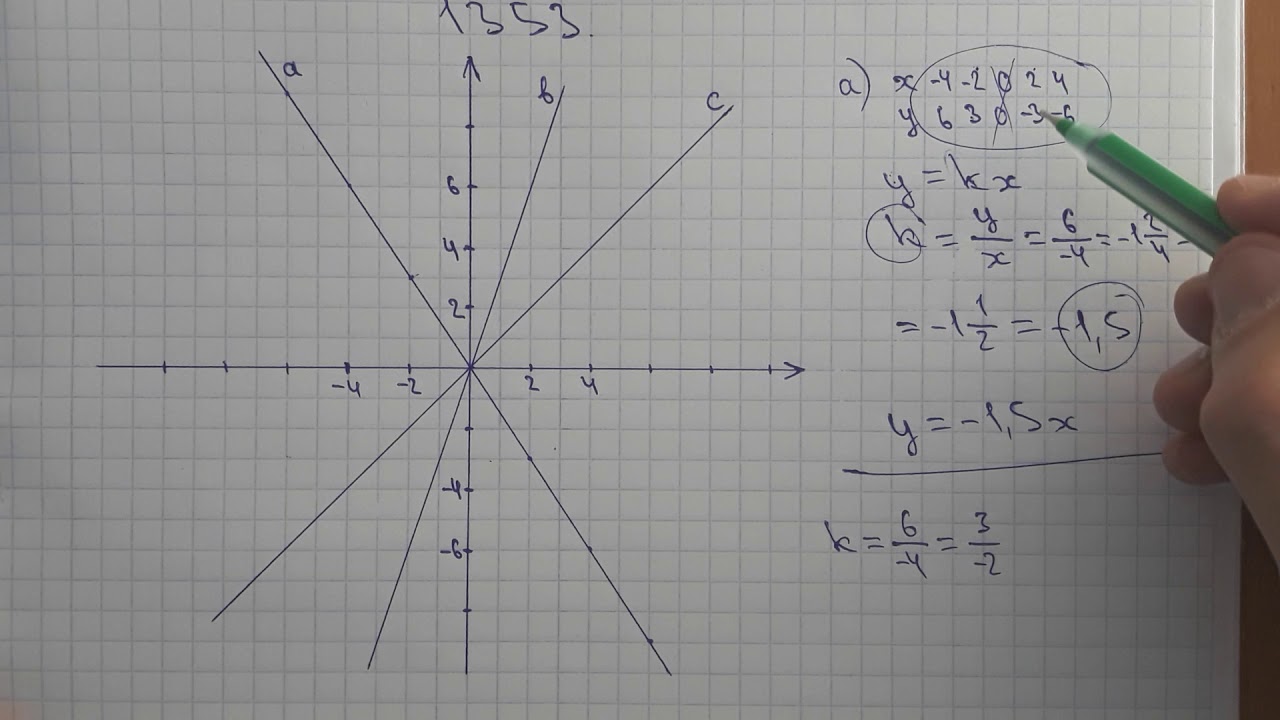 1353.
a
b
c
6
4
2
-4 -2 2 4
-4
-6
a) x -4 -2 0 2 4
y 6 3 0 -3 -6
y = kx
k = y/x = 6/-4 = -1 2/4 =
= -1 1/2 = -1,5
y = -1,5x
k = 6/-4 = 3/-2